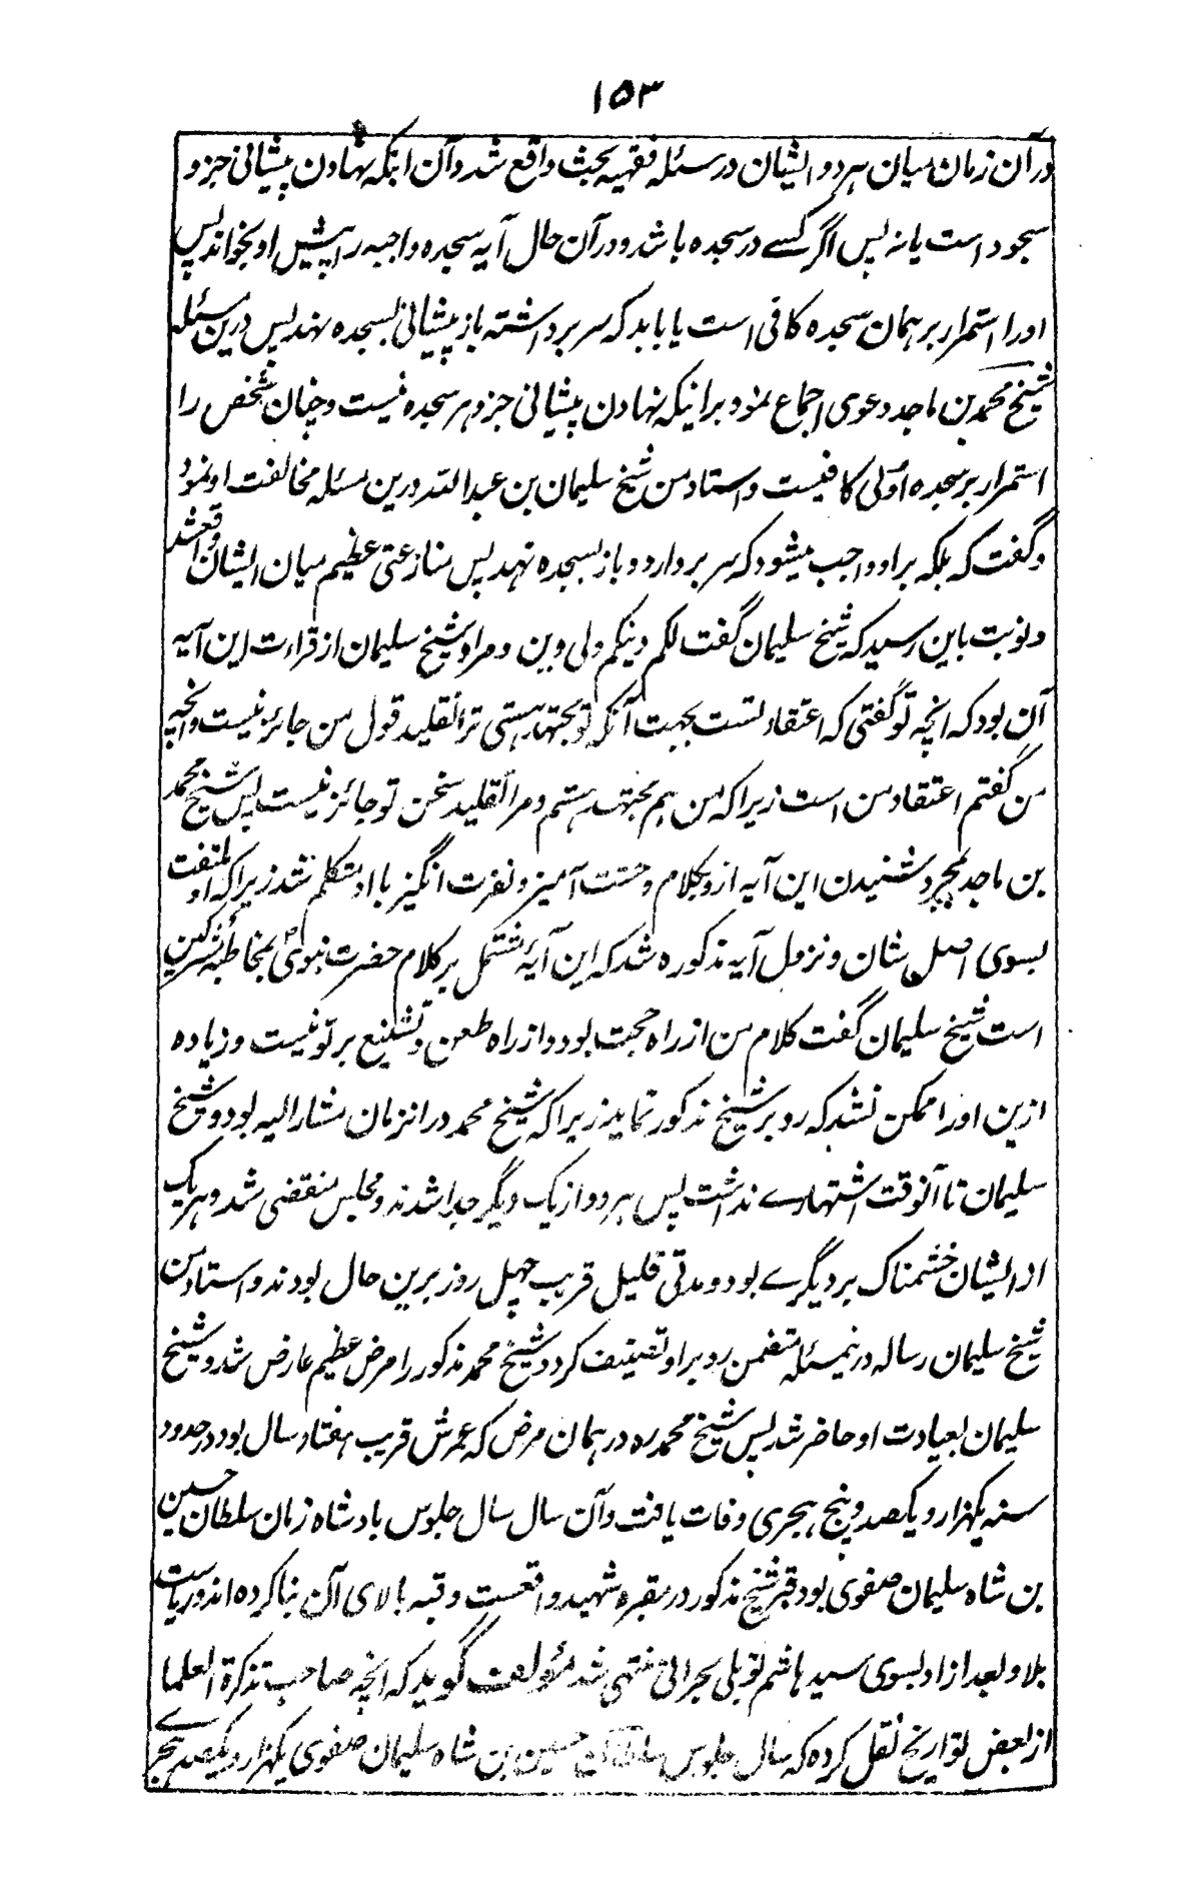 ۱۵۳
در آن زمان میان هر دو ایشان در مسئله فقهیه بحث واقع شد و آن اینکه نهادن پیشانی جزو
سجود است یا نه پس اگر کسے در سجده باشد و در آن حال آیه سجده واجبه را پیش او بخواند پس
اورا استمرار بر همان سجده کافی است یا باید که سر برداشته باز پیشانی بسجده نهد پس درین مسئله
شیخ محمد بن ماجد دعوی اجماع نمود برانیکه نهادن پیشانی جزو هر سجده نیست و چنان شخص را
استمرار بر سجده اولی کافیست و استاد من شیخ سلیمان بن عبدالله درین مسئله مخالفت او نمود
و گفت که بلکه بر او واجب میشود که سر بردارد و باز بسجده نهد پس منازعتی عظیم میان ایشان واقعشد
و نوبت باین رسید که شیخ سلیمان گفت لکم دینکم ولی دین و مراد شیخ سلیمان از قراءت این آیه
آن بود که انچه تو گفتی که اعتقاد تست بجهت آنکه تو مجتهد هستی ترا تقلید قول من جائز نیست و انچه
من گفتم اعتقاد من است زیرا که من هم مجتهد هستم و مرا تقلید سخن تو جائز نیست پس شیخ محمد
بن ماجد بمجرد شنیدن این آیه ازو بکلام وحشت آمیز و نفرت انگیز با او متکلم شد زیرا که او ملتفت
بسوی اصل شان و نزول آیه مذکوره شد که این آیه مشتمل بر کلام حضرت نبوی بمخاطبه مشرکین
است شیخ سلیمان گفت کلام من از راه حجت بود و از راه طعن و تشنیع بر تو نیست و زیاده
ازین اورا ممکن نشد که رد بر شیخ مذکور نماید زیرا که شیخ محمد درانزمان مشارالیه بود و شیخ
سلیمان تا آنوقت اشتهارے نداشت پس هر دو از یک دیگر جدا شدند و مجلس منقضی شد و هر یک
از ایشان خشمناک بر دیگرے بود و مدتی قلیل قریب چهل روز برین حال بودند و استاد من
شیخ سلیمان رساله درینمسئله متضمن رد بر او تصنیف کرد و شیخ محمد مذکور را مرض عظیم عارض شد و شیخ
سلیمان بعیادت او حاضر شد پس شیخ محمد ره در همان مرض که عمرش قریب هفتاد سال بود در حدود
سنه یکهزار و یکصد و پنج هجری وفات یافت و آن سال سال جلوس بادشاه زمان سلطان حسین
بن شاه سلیمان صفوی بود قبر شیخ مذکور در مقبره شهید واقعست و قبه بالای آن بنا کرده اند و ریاست
بلاد بعد از او بسوی سید هاشم توبلی بحرانی منتهی شد مؤلف گوید که انچه صاحب تذکرة العلما
از بعض تواریخ نقل کرده که سال جلوس سلطان حسین بن شاه سلیمان صفوی یکهزار و یکصد هجرے